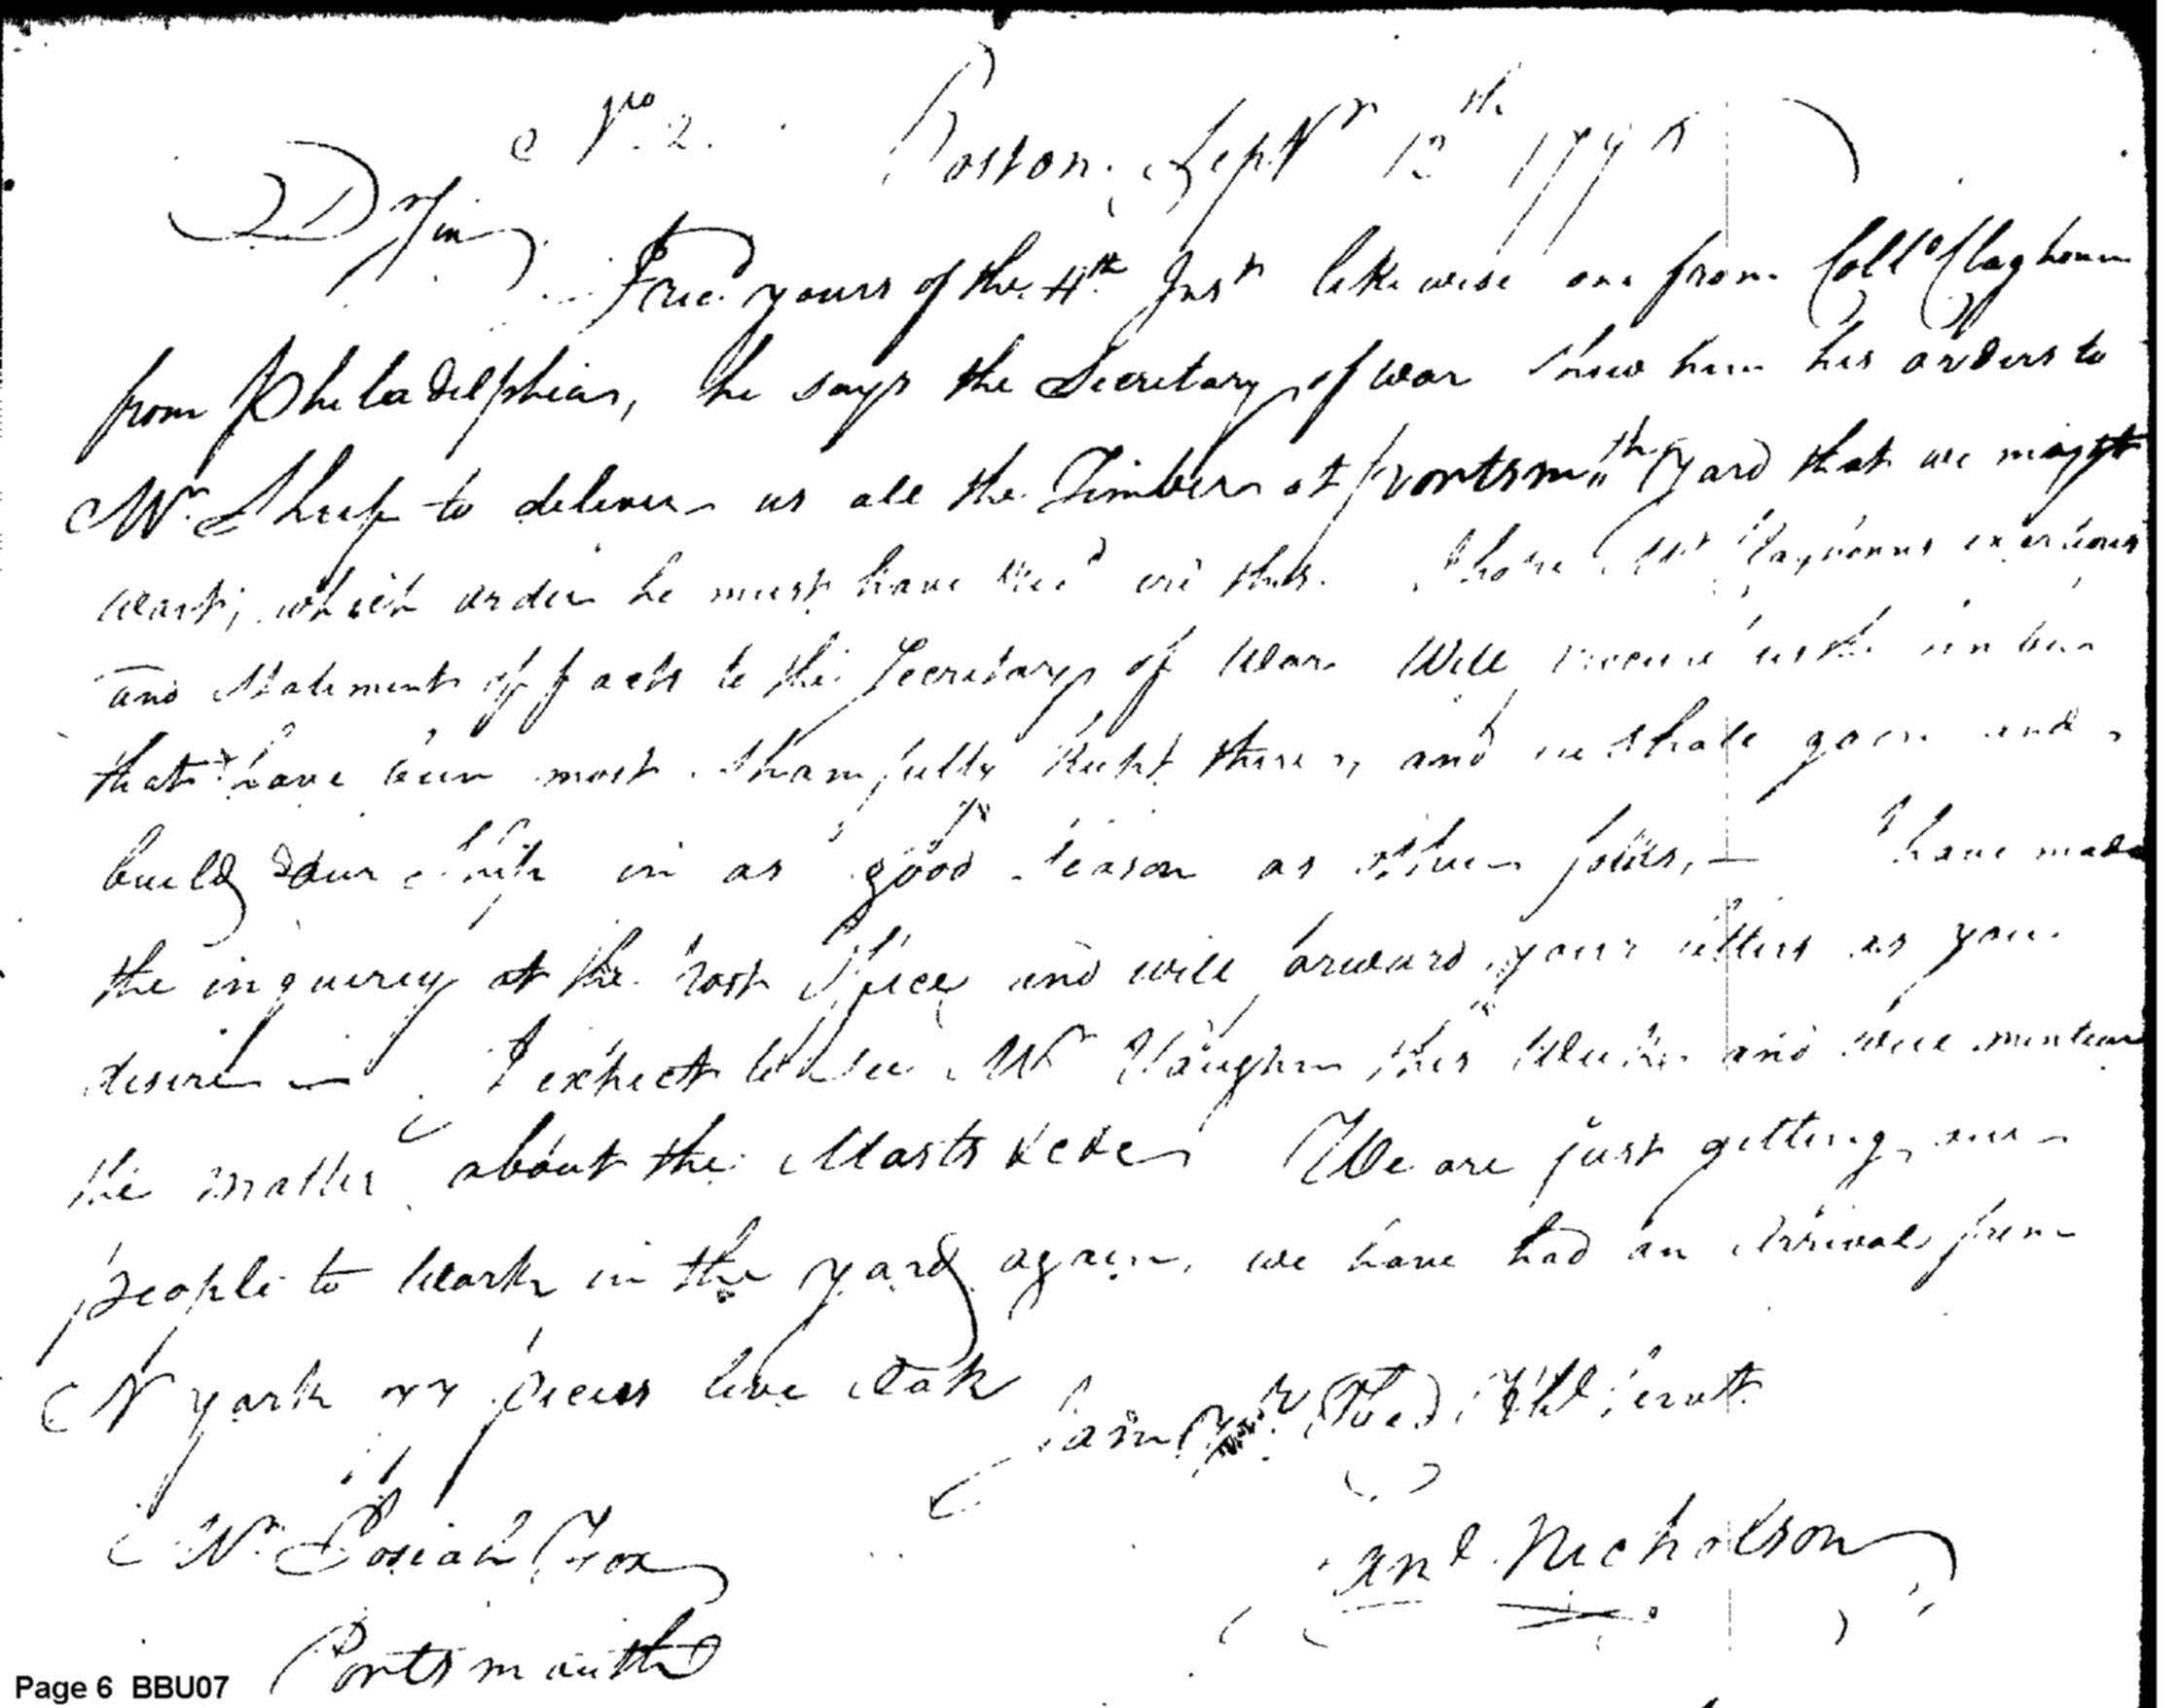 No. 2. Boston. Septr 12th 179
Dr Sir
I recd yours of the 4th Inst likewise one from Coll Claghorn
from Philadelphia, he says the Secretary of War shew him his orders to
Mr Sheaf to deliver us all the Timber at Portsmth Yard that we might
want, which order he must have recd ere this. I hope Coll Claghorns exertions
and Statement of facts to the Secretary of War Will procure us the timber
that have been most shamfully kept there, and we shall go on and
build our ship in as good season as other folks, — I have made
the inquirey at the Post Office and will forward your letters as you
desire — I expect to see Mr Vaughn this Week and will mention
the matter about the Masts &c &c We are just getting our
people to Work in the yard again, we have had an Arrival from
N york 77 pieces live Oak
I am Yr Obdt Servt
Mr Josiah Fox
Saml Nicholson
Portsmouth
Page 6 BBU07